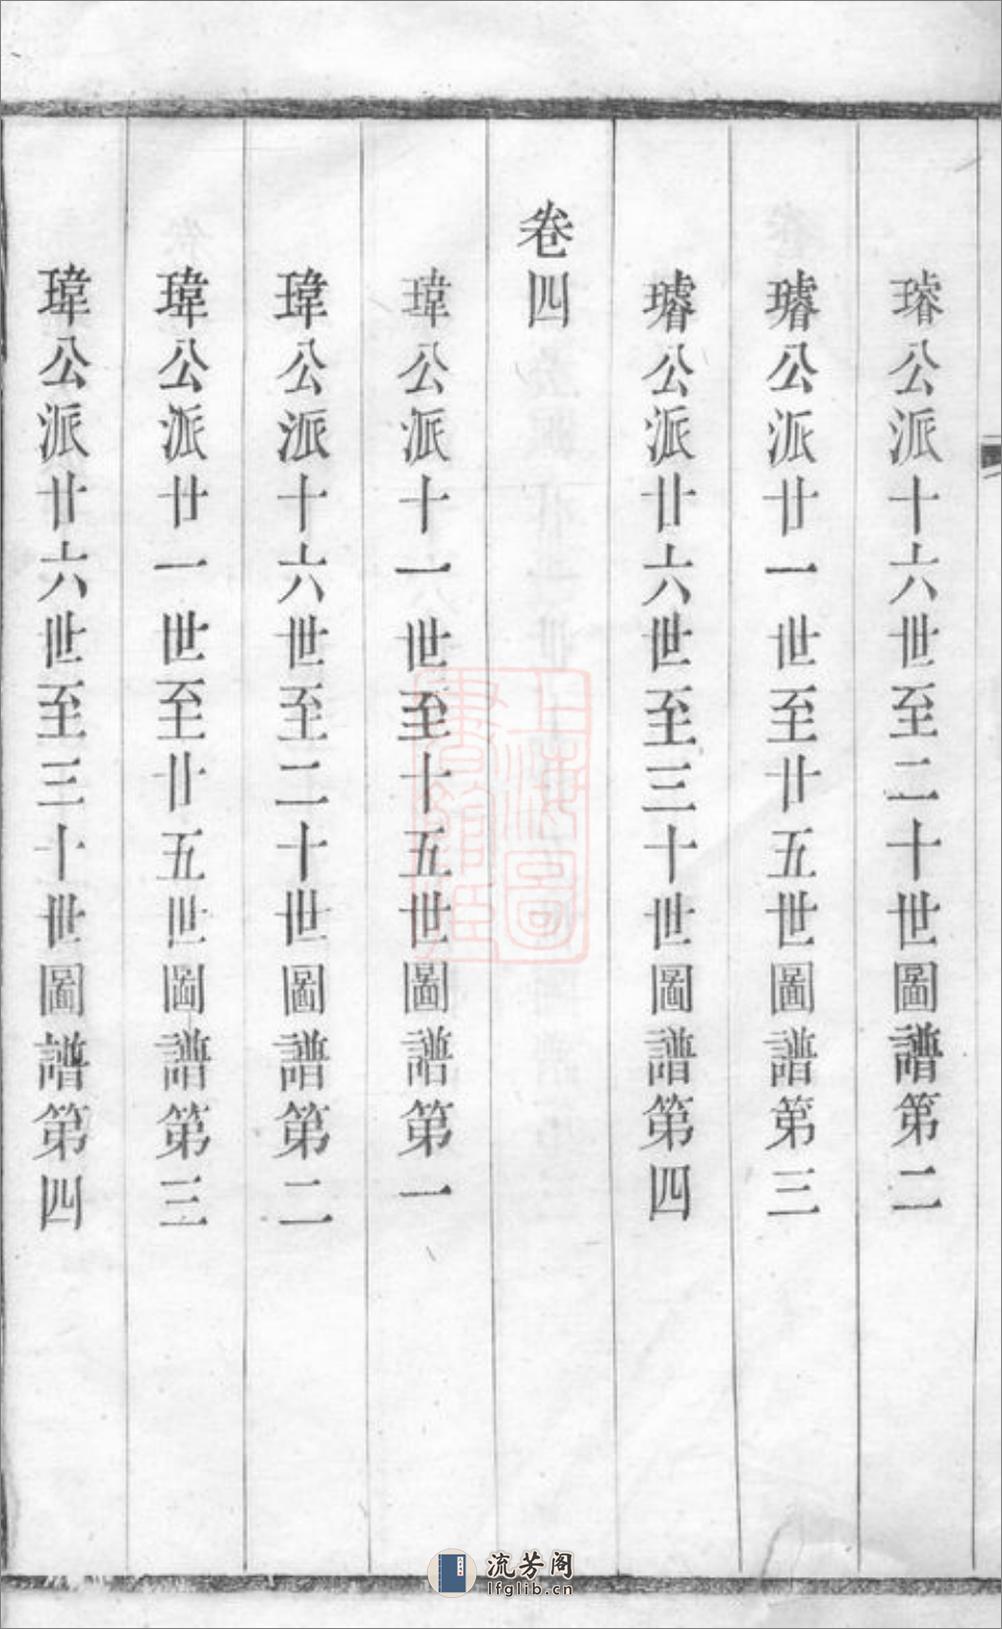 璿公派十六世至二十世圖譜第二
璿公派廿一世至廿五世圖譜第三
璿公派廿六世至三十世圖譜第四
卷四
瑋公派十一世至十五世圖譜第一
瑋公派十六世至二十世圖譜第二
瑋公派廿一世至廿五世圖譜第三
瑋公派廿六世至三十世圖譜第四
上海圖書館藏
流芳阁
lfglib.cn